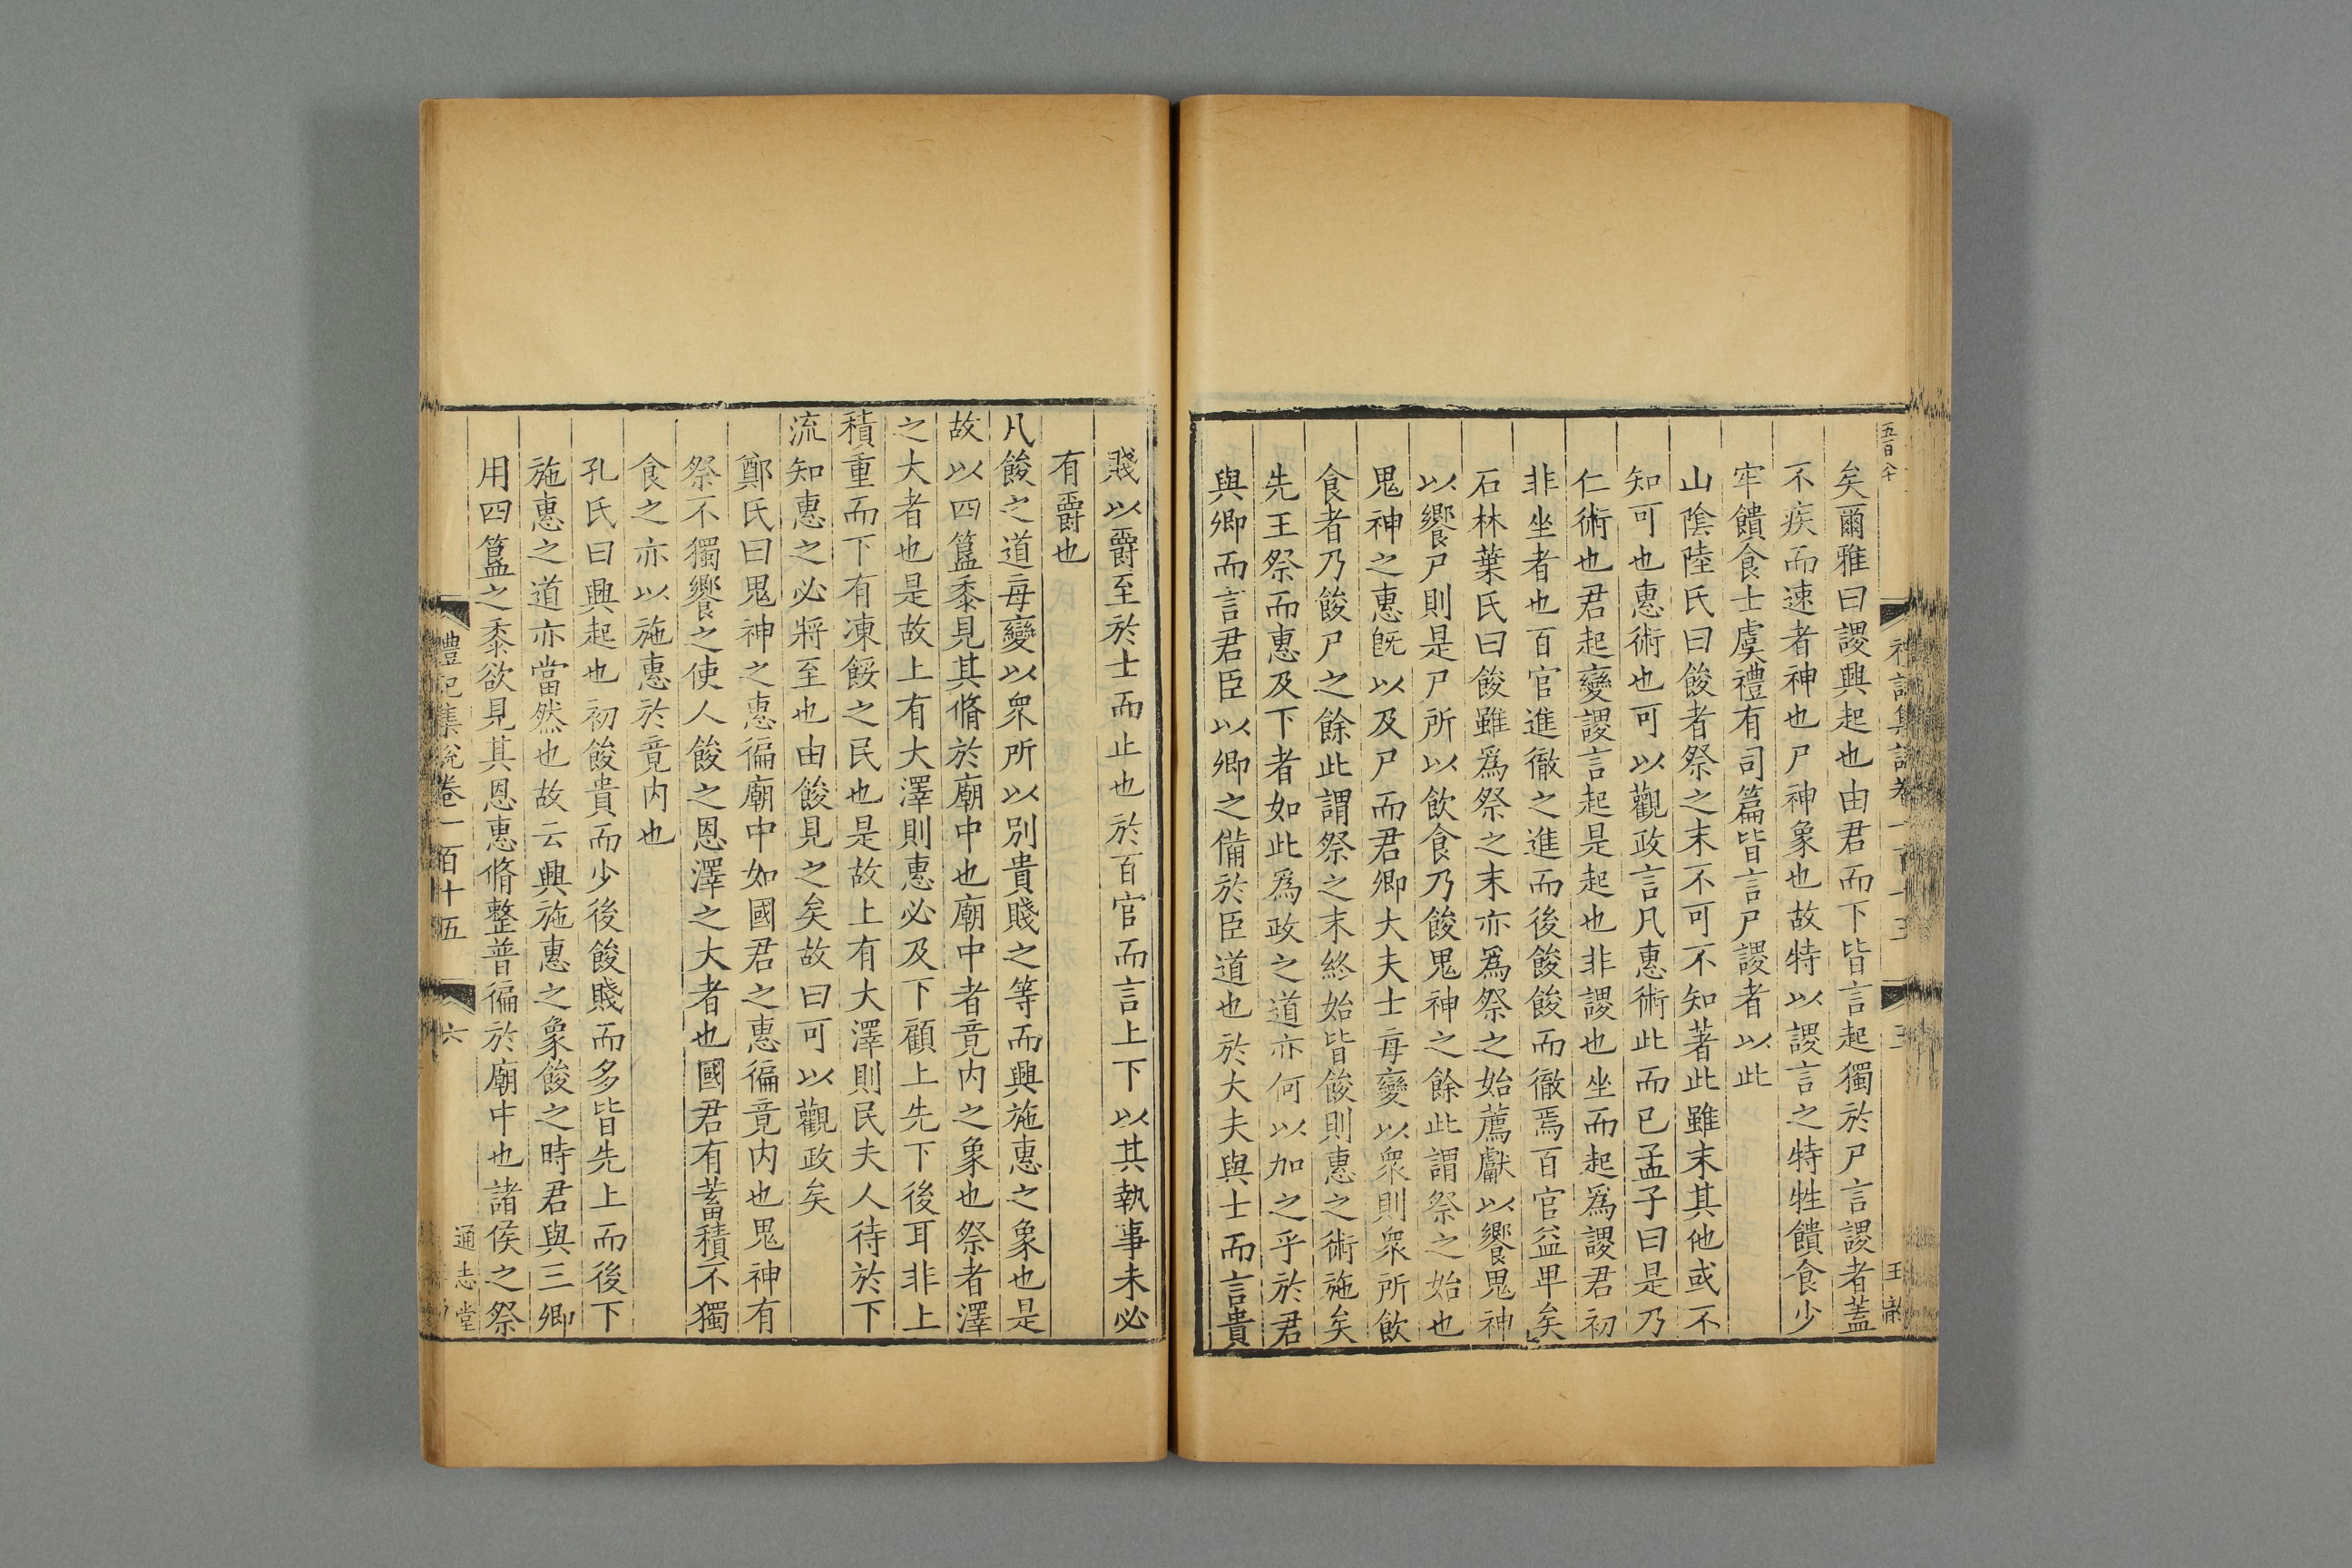 五百六
矣爾雅曰謖興起也由君而下皆言起獨於尸言謖者蓋
不疾而速者神也尸神象也故特以謖言之特牲饋食少
牢饋食士虞禮有司篇皆言尸謖者以此
山陰陸氏曰餕者祭之末不可不知著此雖末其他或不
知可也惠術也可以觀政言凡惠術此而已孟子曰是乃
仁術也君起變謖言起是起也非謖也坐而起爲謖君初
非坐者也百官進徹之進而後餕餕而徹焉百官益卑矣
石林葉氏曰餕雖爲祭之末亦爲祭之始薦獻以饗鬼神
以饗尸則是尸所以飲食乃餕鬼神之餘此謂祭之始也
鬼神之惠旣以及尸而君卿大夫士每變以衆則衆所飲
食者乃餕尸之餘此謂祭之末終始皆餕則惠之術施矣
先王祭而惠及下者如此爲政之道亦何以加之乎於君
與卿而言君臣以卿之備於臣道也於大夫與士而言貴
賤以爵至於士而止也於百官而言上下以其執事未必
有爵也
凡餕之道每變以衆所以別貴賤之等而興施惠之象也是
故以四簋黍見其脩於廟中也廟中者竟内之象也祭者澤
之大者也是故上有大澤則惠必及下顧上先下後耳非上
積重而下有凍餒之民也是故上有大澤則民夫人待於下
流知惠之必將至也由餕見之矣故曰可以觀政矣
鄭氏曰鬼神之惠徧廟中如國君之惠徧竟内也鬼神有
祭不獨饗之使人餕之恩澤之大者也國君有蓄積不獨
食之亦以施惠於竟内也
孔氏曰興起也初餕貴而少後餕賤而多皆先上而後下
施惠之道亦當然也故云興施惠之象餕之時君與三卿
用四簋之黍欲見其恩惠脩整普徧於廟中也諸侯之祭
禮記集說卷一百十五
六
通志堂